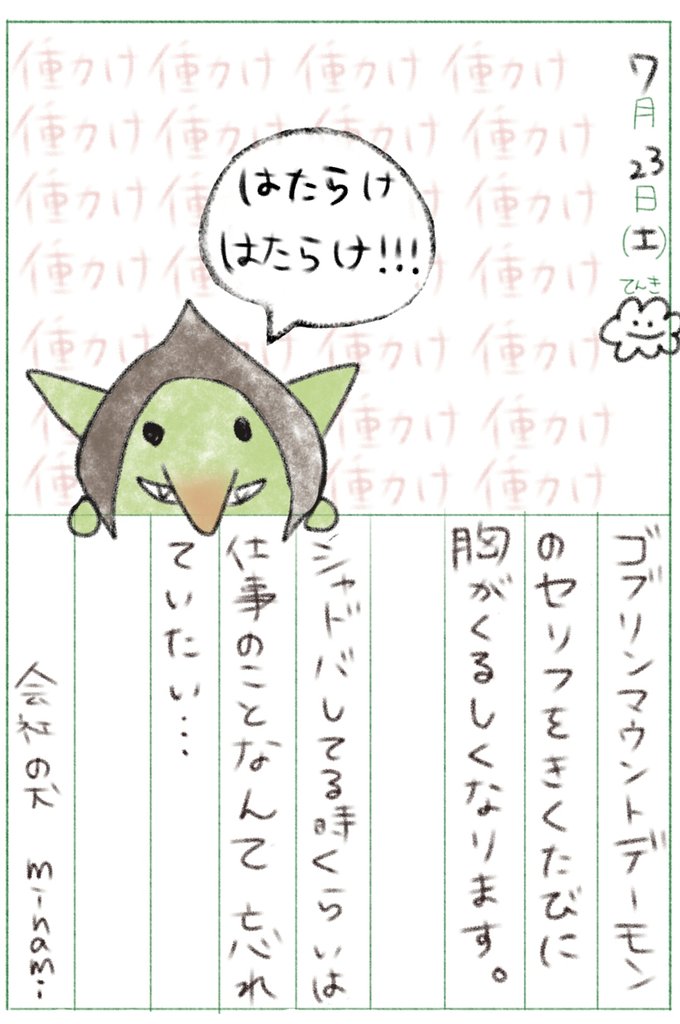 7月23日(土)
てんき
働け 働け 働け 働け
働け 働け 働け 働け
働け 働け
働け 働け
働け 働け
働け 働け 働け
働け 働け 働け
はたらけ
はたらけ!!!
ゴブリンマウントデーモン
のセリフをきくたびに
胸がくるしくなります。
シャドバしてる時くらいは
仕事のことなんて 忘れ
ていたい…
会社の犬 minami